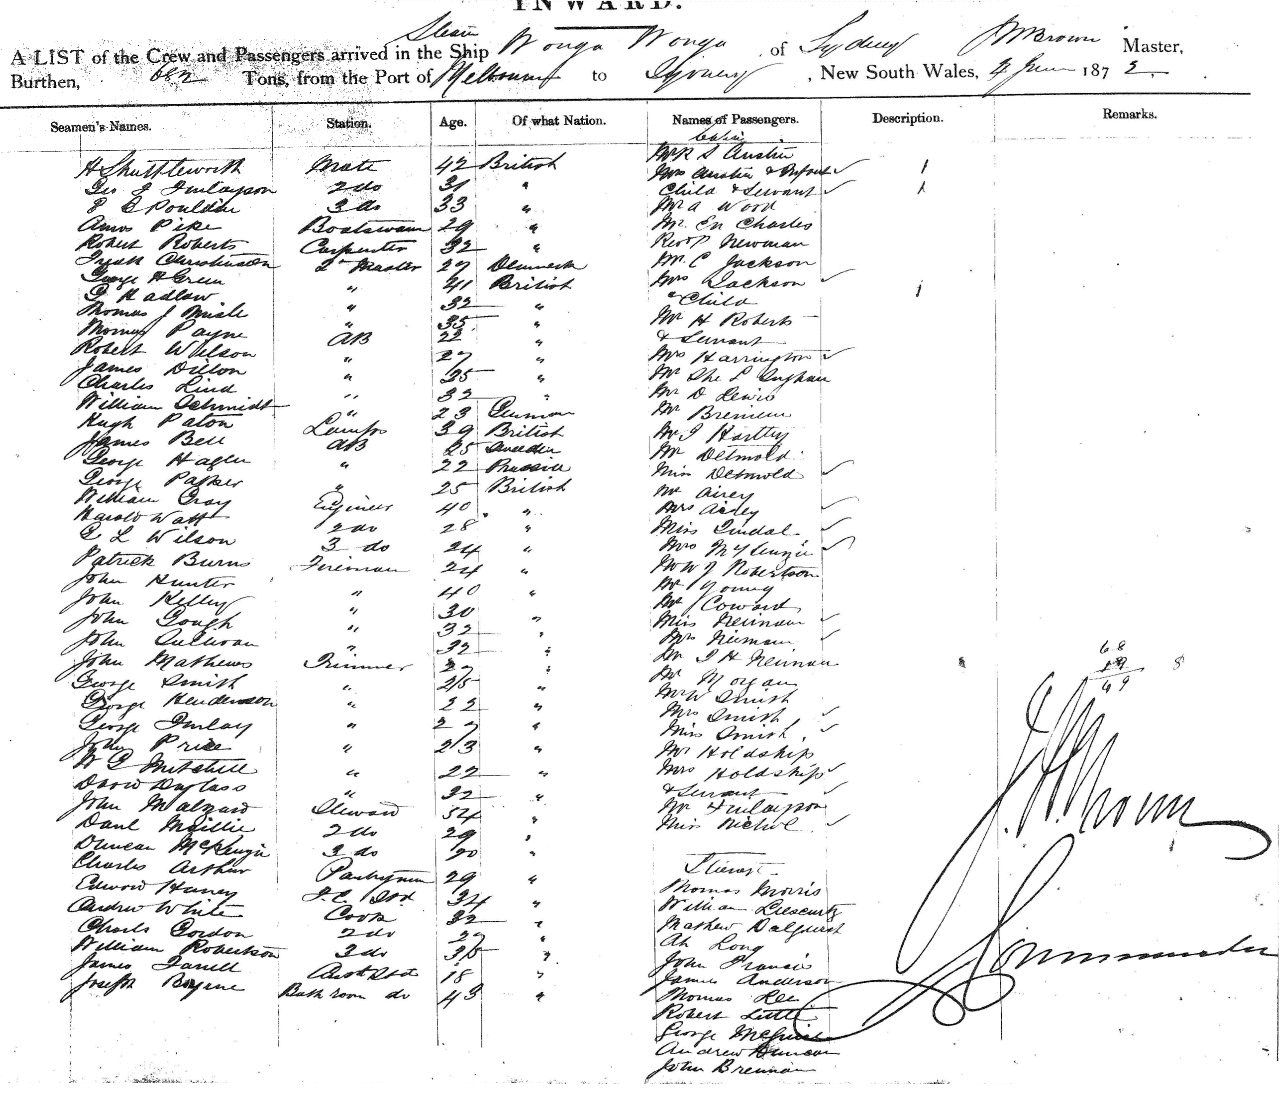 INWARD.
A LIST of the Crew and Passengers arrived in the Ship Steam Wonga Wonga of Sydney Master,
Burthen, 682 Tons, from the Port of Melbourne to Sydney, New South Wales, 4 June 1872.
Seamen's Names. Station. Age. Of what Nation. Names of Passengers. Description. Remarks.
Cabin
H Shuttleworth Mate 42 British Mr R S Austin
Geo J Finlayson 2 do 31 " Mrs Austin & Infant ✓ 1
3 do 33 " Child & Servant ✓ 1
Amos Pike Boatswain 29 " Mr A Wood
Robert Roberts Carpenter 32 " Mr Charles
Christensen 27 Denmark Newman
George H Green " 41 British Mr C Jackson
G Hadlow " 32 " Mrs Jackson ✓
Thomas J " 35 " & Child 1
Thomas Payne AB 22 " Mr H Roberts
Robert Wilson " 27 " & Servant
James Dillon " 35 " Mrs Harrington ✓
Charles Lind " 32 "
William Schmidt " 23 German Mr D Lewis
Hugh Paton Lamps 39 British Mr
James Bell AB 25 Sweden Mr J Hartley
George Hagen " 22 Prussia Mr Detmold
George Parker " 25 British Miss Detmold ✓
William Gray Engineer 40 " Mr Airey
Harold Watt 2 do 28 " Mrs Airey ✓
E L Wilson 3 do 24 " Miss Tindal ✓
Patrick Burns Fireman 24 " Mrs McKenzie ✓
John Hunter " 40 " Robertson
John Kelley " 30 " Mr Young
John Gough " 32 " Mr Coward
John Sullivan " 32 " Miss Neuman ✓
John Mathews Trimmer 27 " Mrs Neuman ✓
George Smith " 25 " Mr J H Neuman
George Henderson " 22 " Mr Morgan
George Finlay " 27 " Mr W Smith
John Price " 23 " Mrs Smith ✓
W G Mitchell " 22 " Miss Smith ✓
David Duglass " 32 " Mr Holdship
John Malzard Steward 54 " Mrs Holdship ✓
Danl Meillie 2 do 29 " & Servant ✓
Duncan McKenzie 3 do 20 " Mr Finlayson
Charles Arthur Pantryman 29 " Miss Nichol ✓
Edward Haney 34 "
Andrew White Cook 32 "
Charles Gordon 2 do 27 "
William Robertson 3 do 35 "
James Farrell 18 "
Joseph Bath room do 43 "
Steerage
Thomas Morris
William
Mathew Dalquist
Ah Long
John Francis
James Anderson
Thomas Lee
Robert Little
George McGuire
Andrew Duncan
John Brennan
68
19 8
49
Commander